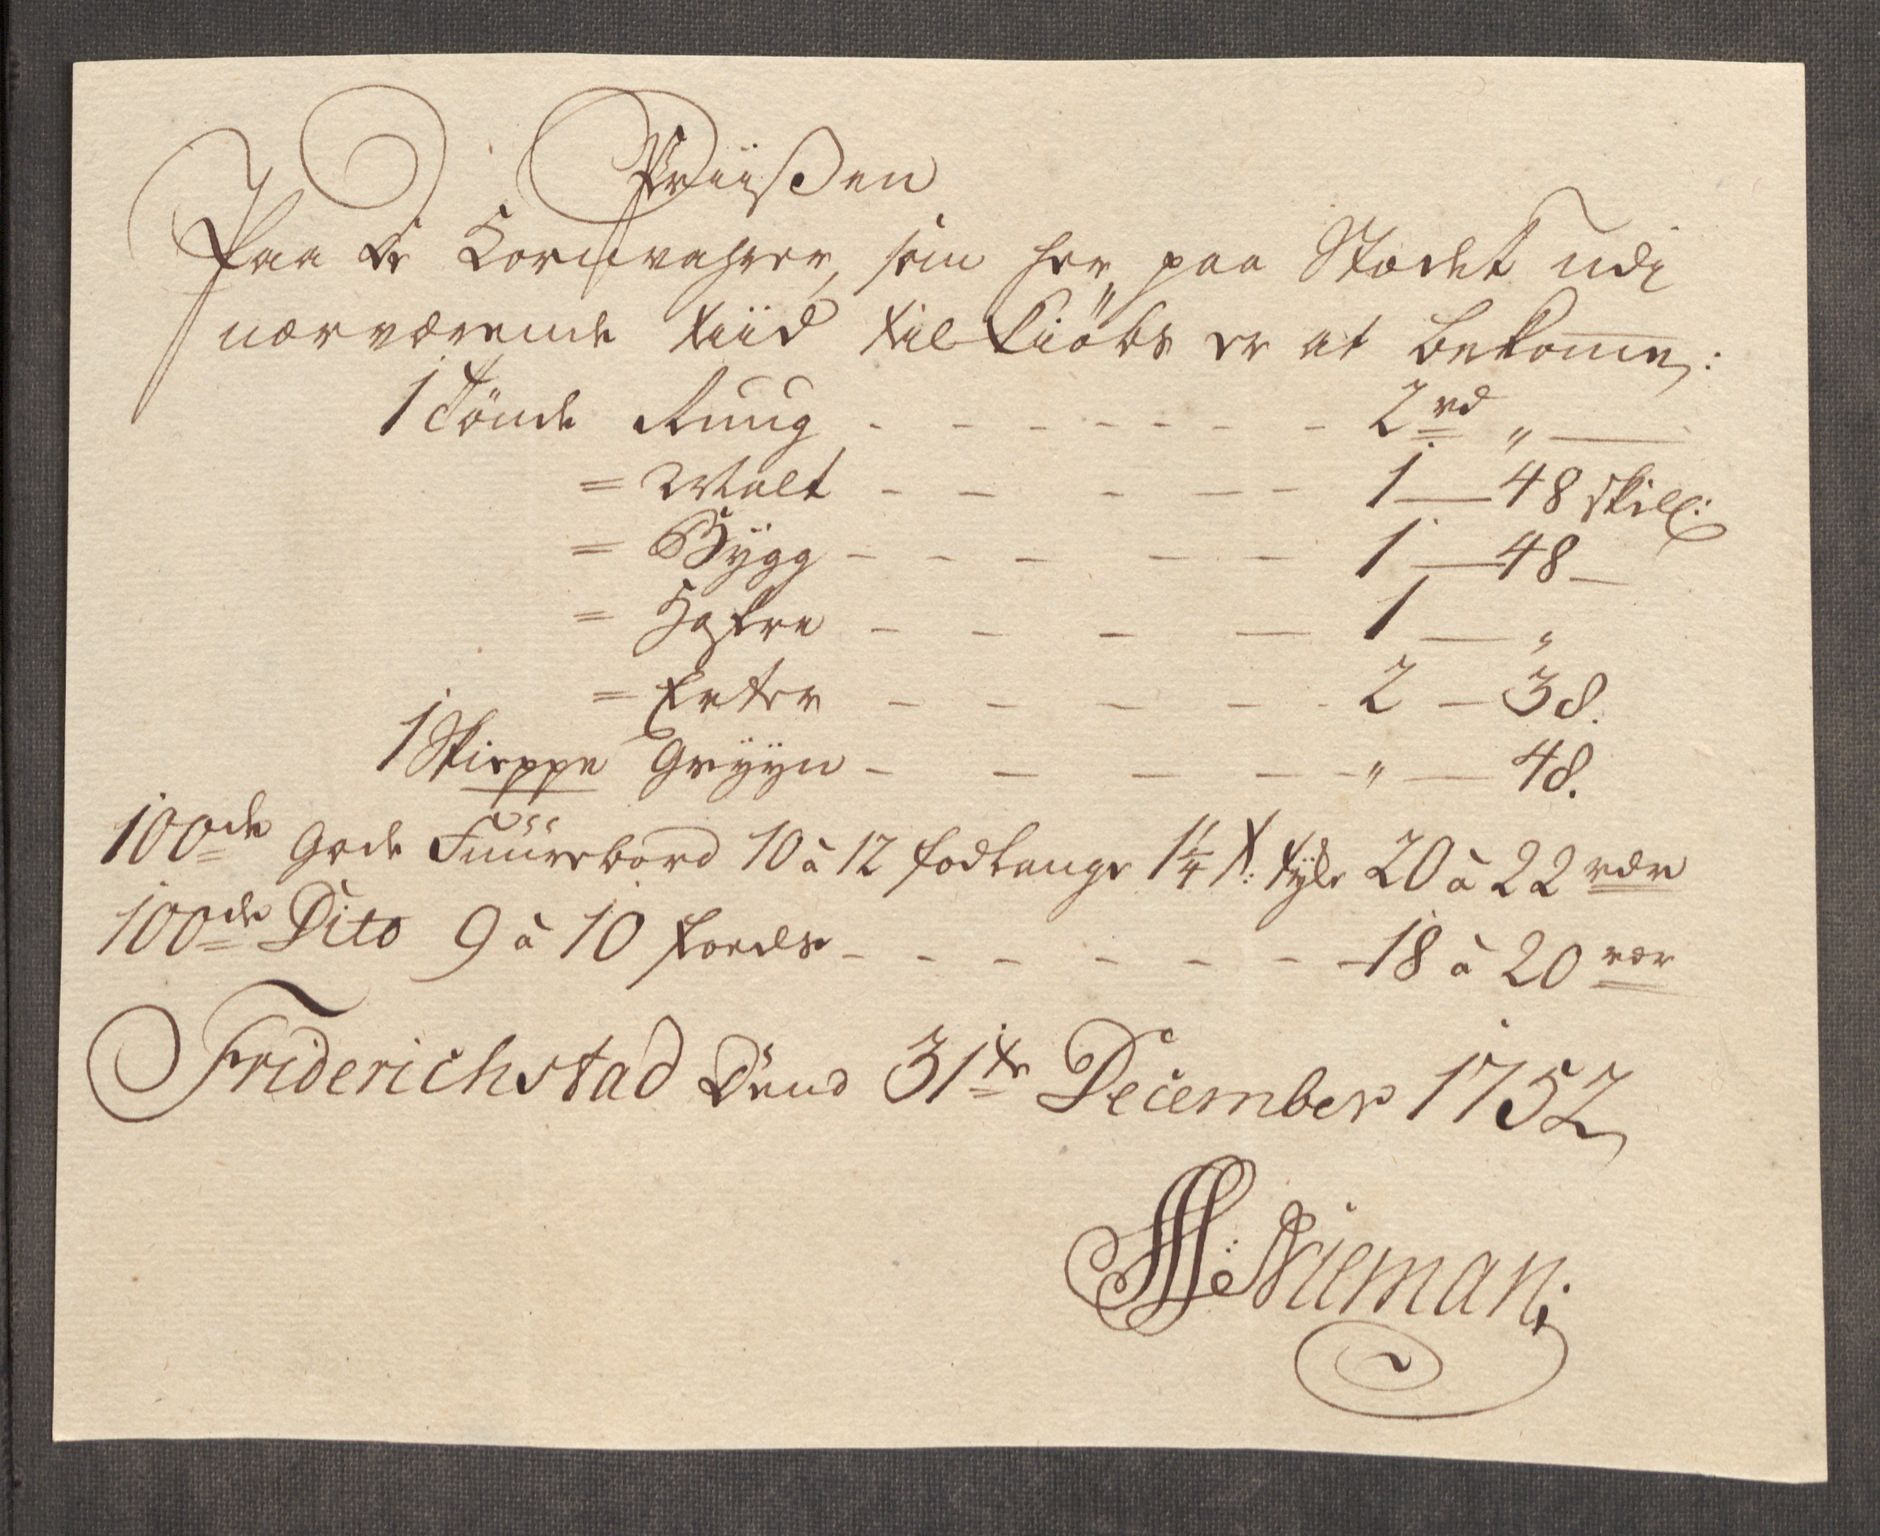 Priisen
Paa de Kornvahrer, som her paa Stædet udi
nærværende tiid til kiøbs er at bekomme:
1 Tönde Ruug - - - - - - - 2 rd " —
= Malt - - - - - 1 — 48 skill:
= Bygg - - - - - 1 — 48 —
= Hafre - - - - 1 — "
= Erter - - - - - 2 — 38.
1 Skieppe Gryyn - - - - - " — 48.
100de gode Fuurebord 10 à 12 fod lange 1¼ t: tyke 20 à 22 rdr
100de Dito 9 à 10 foeds - - - - - - - 18 à 20 rdr
Friderichstad Dend 31te December 1752
Nieman: